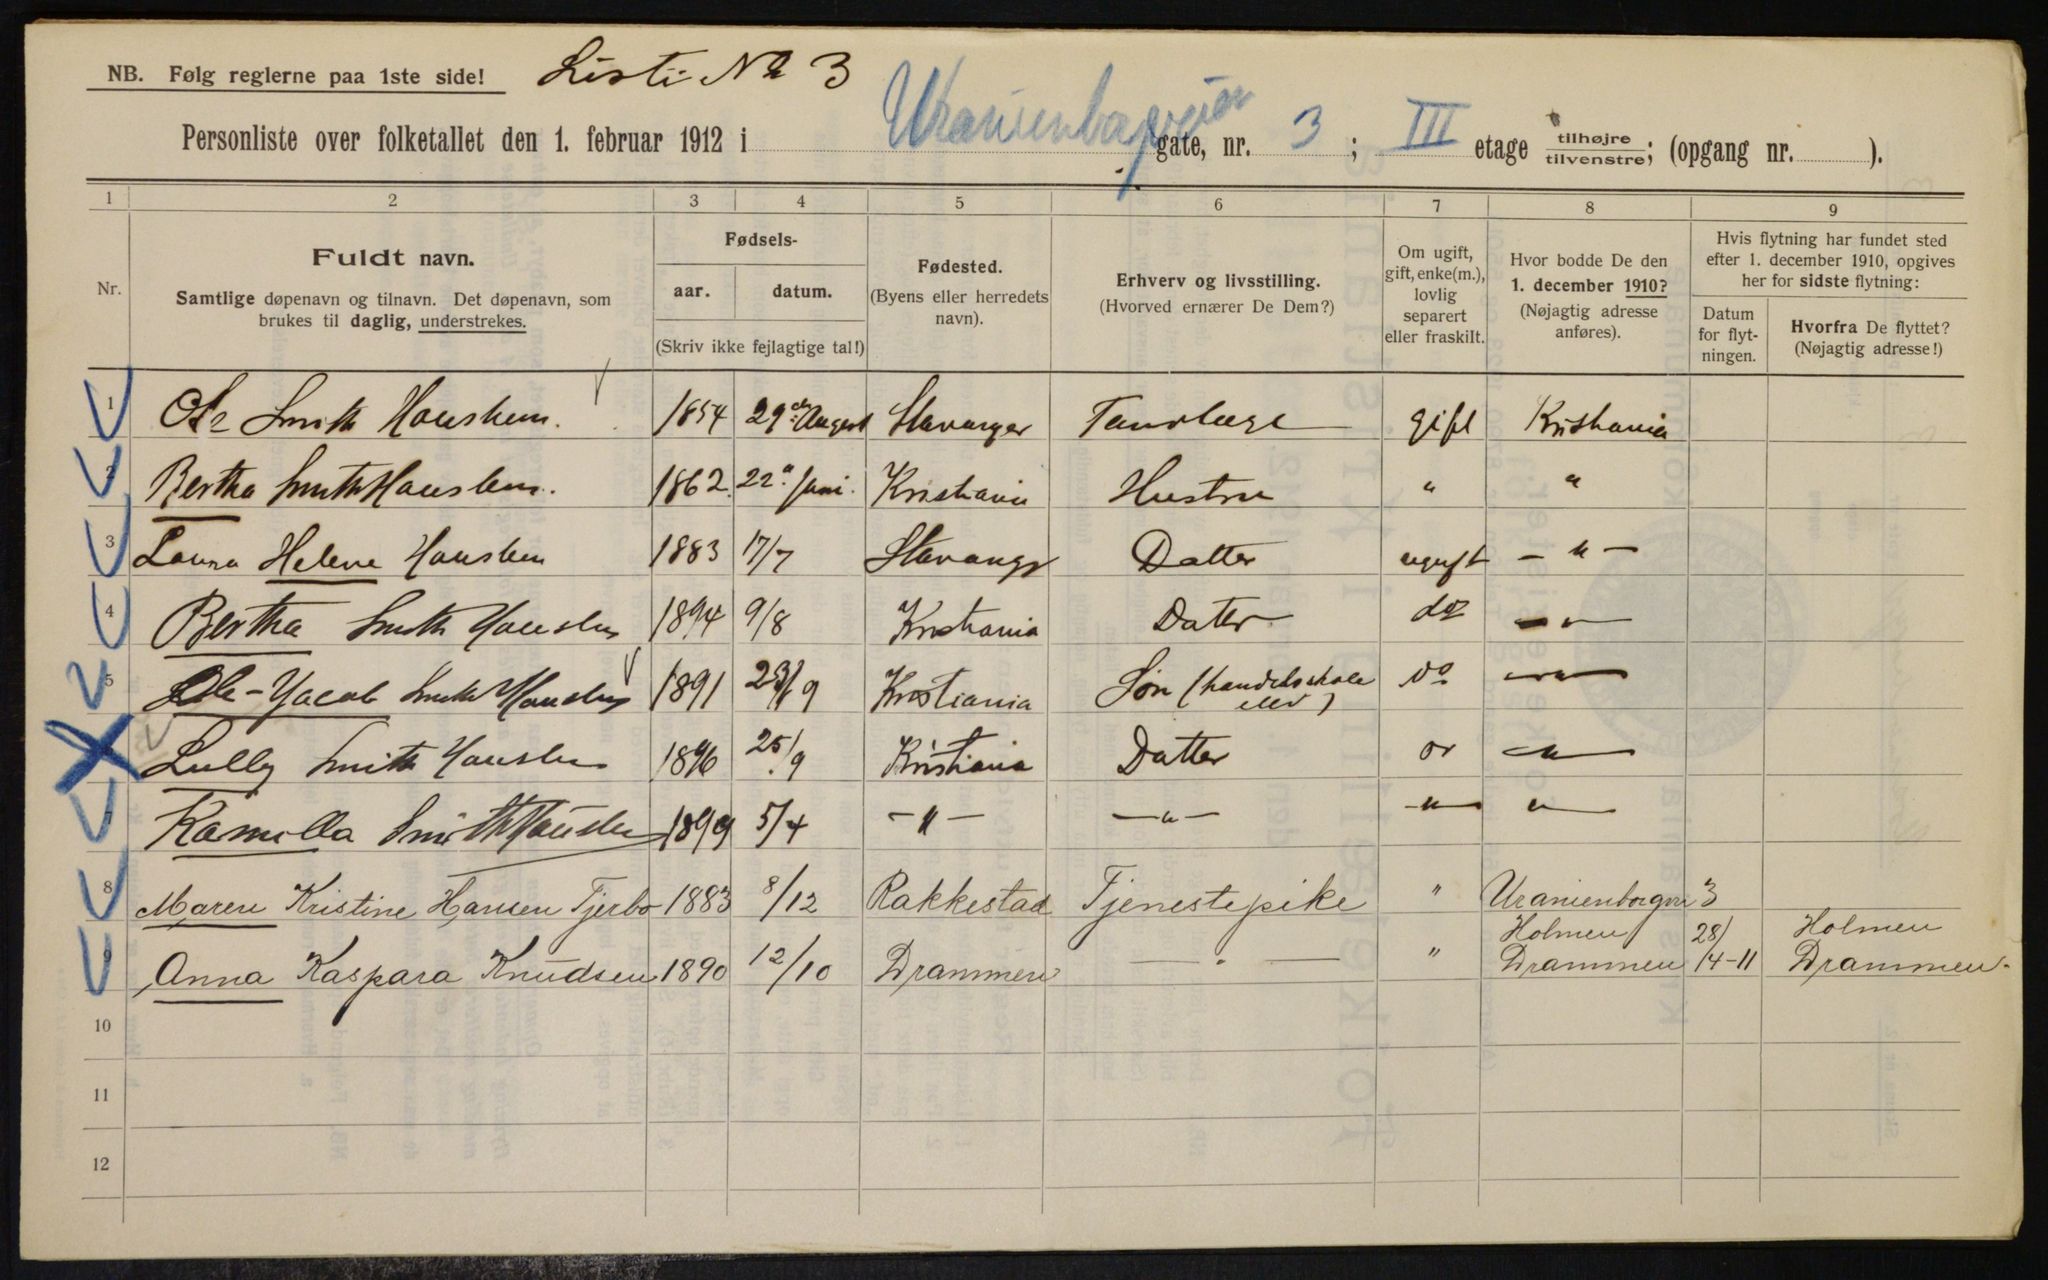 NB. Følg reglerne paa 1ste side! Liste No 3
Personliste over folketallet den 1. februar 1912 i Uranienborgveien gate, nr. 3 ; III etage tilhøjre tilvenstre; (opgang nr. ).
1 2 3 4 5 6 7 8 9
Nr.
Fuldt navn.
Samtlige døpenavn og tilnavn. Det døpenavn, som
brukes til daglig, understrekes.
Fødsels-
aar. datum.
(Skriv ikke fejlagtige tal!)
Fødested.
(Byens eller herredets
navn).
Erhverv og livsstilling.
(Hvorved ernærer De Dem?)
Om ugift,
gift, enke(m.),
lovlig
separert
eller fraskilt.
Hvor bodde De den
1. december 1910?
(Nøjagtig adresse
anføres).
Hvis flytning har fundet sted
efter 1. december 1910, opgives
her for sidste flytning:
Datum
for flyt-
ningen.
Hvorfra De flyttet?
(Nøjagtig adresse!)
1 Smith Housken. 1854 29de August Stavanger Tandlæge gift Kristiania
2 Bertha Smith Housken. 1862. 22 Juni. Kristiania Hustru " "
3 Laura Helene Housken 1883 17/7 Stavanger Datter ugift - " -
4 Bertha Smith Housken 1894 9/8 Kristiania Datter do - " -
5 Ole-Jacob Smith Housken 1891 /9 Kristiania Søn (handelsskole do - " -
elev)
Lully Smith Housken 1896 25/9 Kristiania Datter do - " -
7 Kamilla Smith Housken 1899 5/4 - " - - " - - " - - " -
8 Maren Kristine Hansen Tjerbo 1883 8/12 Rakkestad Tjenestepike " Uranienborgvei 3
9 Anna Kaspara Knudsen 1890 12/10 Drammen - " - " Holmen Drammen 28/14-11 Holmen Drammen.
10
11
12